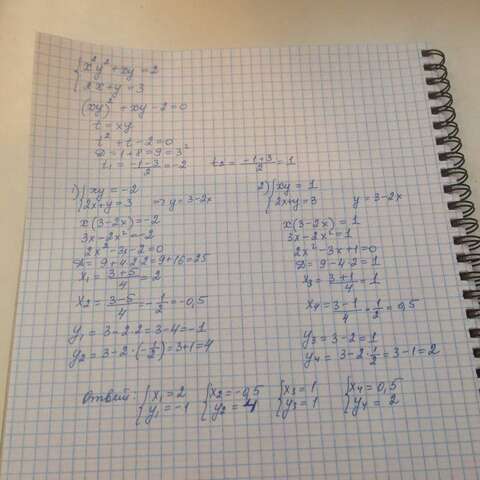 {x²y² + xy = 2
{2x + y = 3
(xy)² + xy - 2 = 0
t = xy
t² + t - 2 = 0
D = 1 + 8 = 9 = 3²
t₁ = (-1-3)/2 = -2 t₂ = (-1+3)/2 = 1
1) {xy = -2
{2x + y = 3 => y = 3-2x
x(3-2x) = -2
3x - 2x² = -2
2x² - 3x - 2 = 0
D = 9 + 4·2·2 = 9 + 16 = 25
x₁ = (3+5)/4 = 2
x₂ = (3-5)/4 = -1/2 = -0,5
y₁ = 3 - 2·2 = 3 - 4 = -1
y₂ = 3 - 2·(-1/2) = 3 + 1 = 4
2) {xy = 1
{2x + y = 3 y = 3-2x
x(3-2x) = 1
3x - 2x² = 1
2x² - 3x + 1 = 0
D = 9 - 4·2 = 1
x₃ = (3+1)/4 = 1
x₄ = (3-1)/4 = 1/2 = 0,5
y₃ = 3 - 2 = 1
y₄ = 3 - 2·1/2 = 3 - 1 = 2
Ответ: {x₁ = 2 {x₂ = -0,5 {x₃ = 1 {x₄ = 0,5
{y₁ = -1 {y₂ = 4 {y₃ = 1 {y₄ = 2